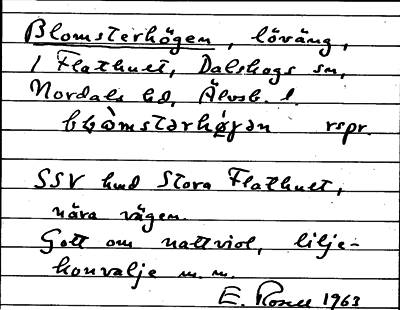 Blomsterhögen, löväng,
i Flathult, Dalskogs sn,
Nordals hd, Älvsb. l.
rspr.
SSV hmd Stora Flathult,
nära vägen.
Gott om nattviol, lilje-
konvalje m.m.
E. Rosell 1963